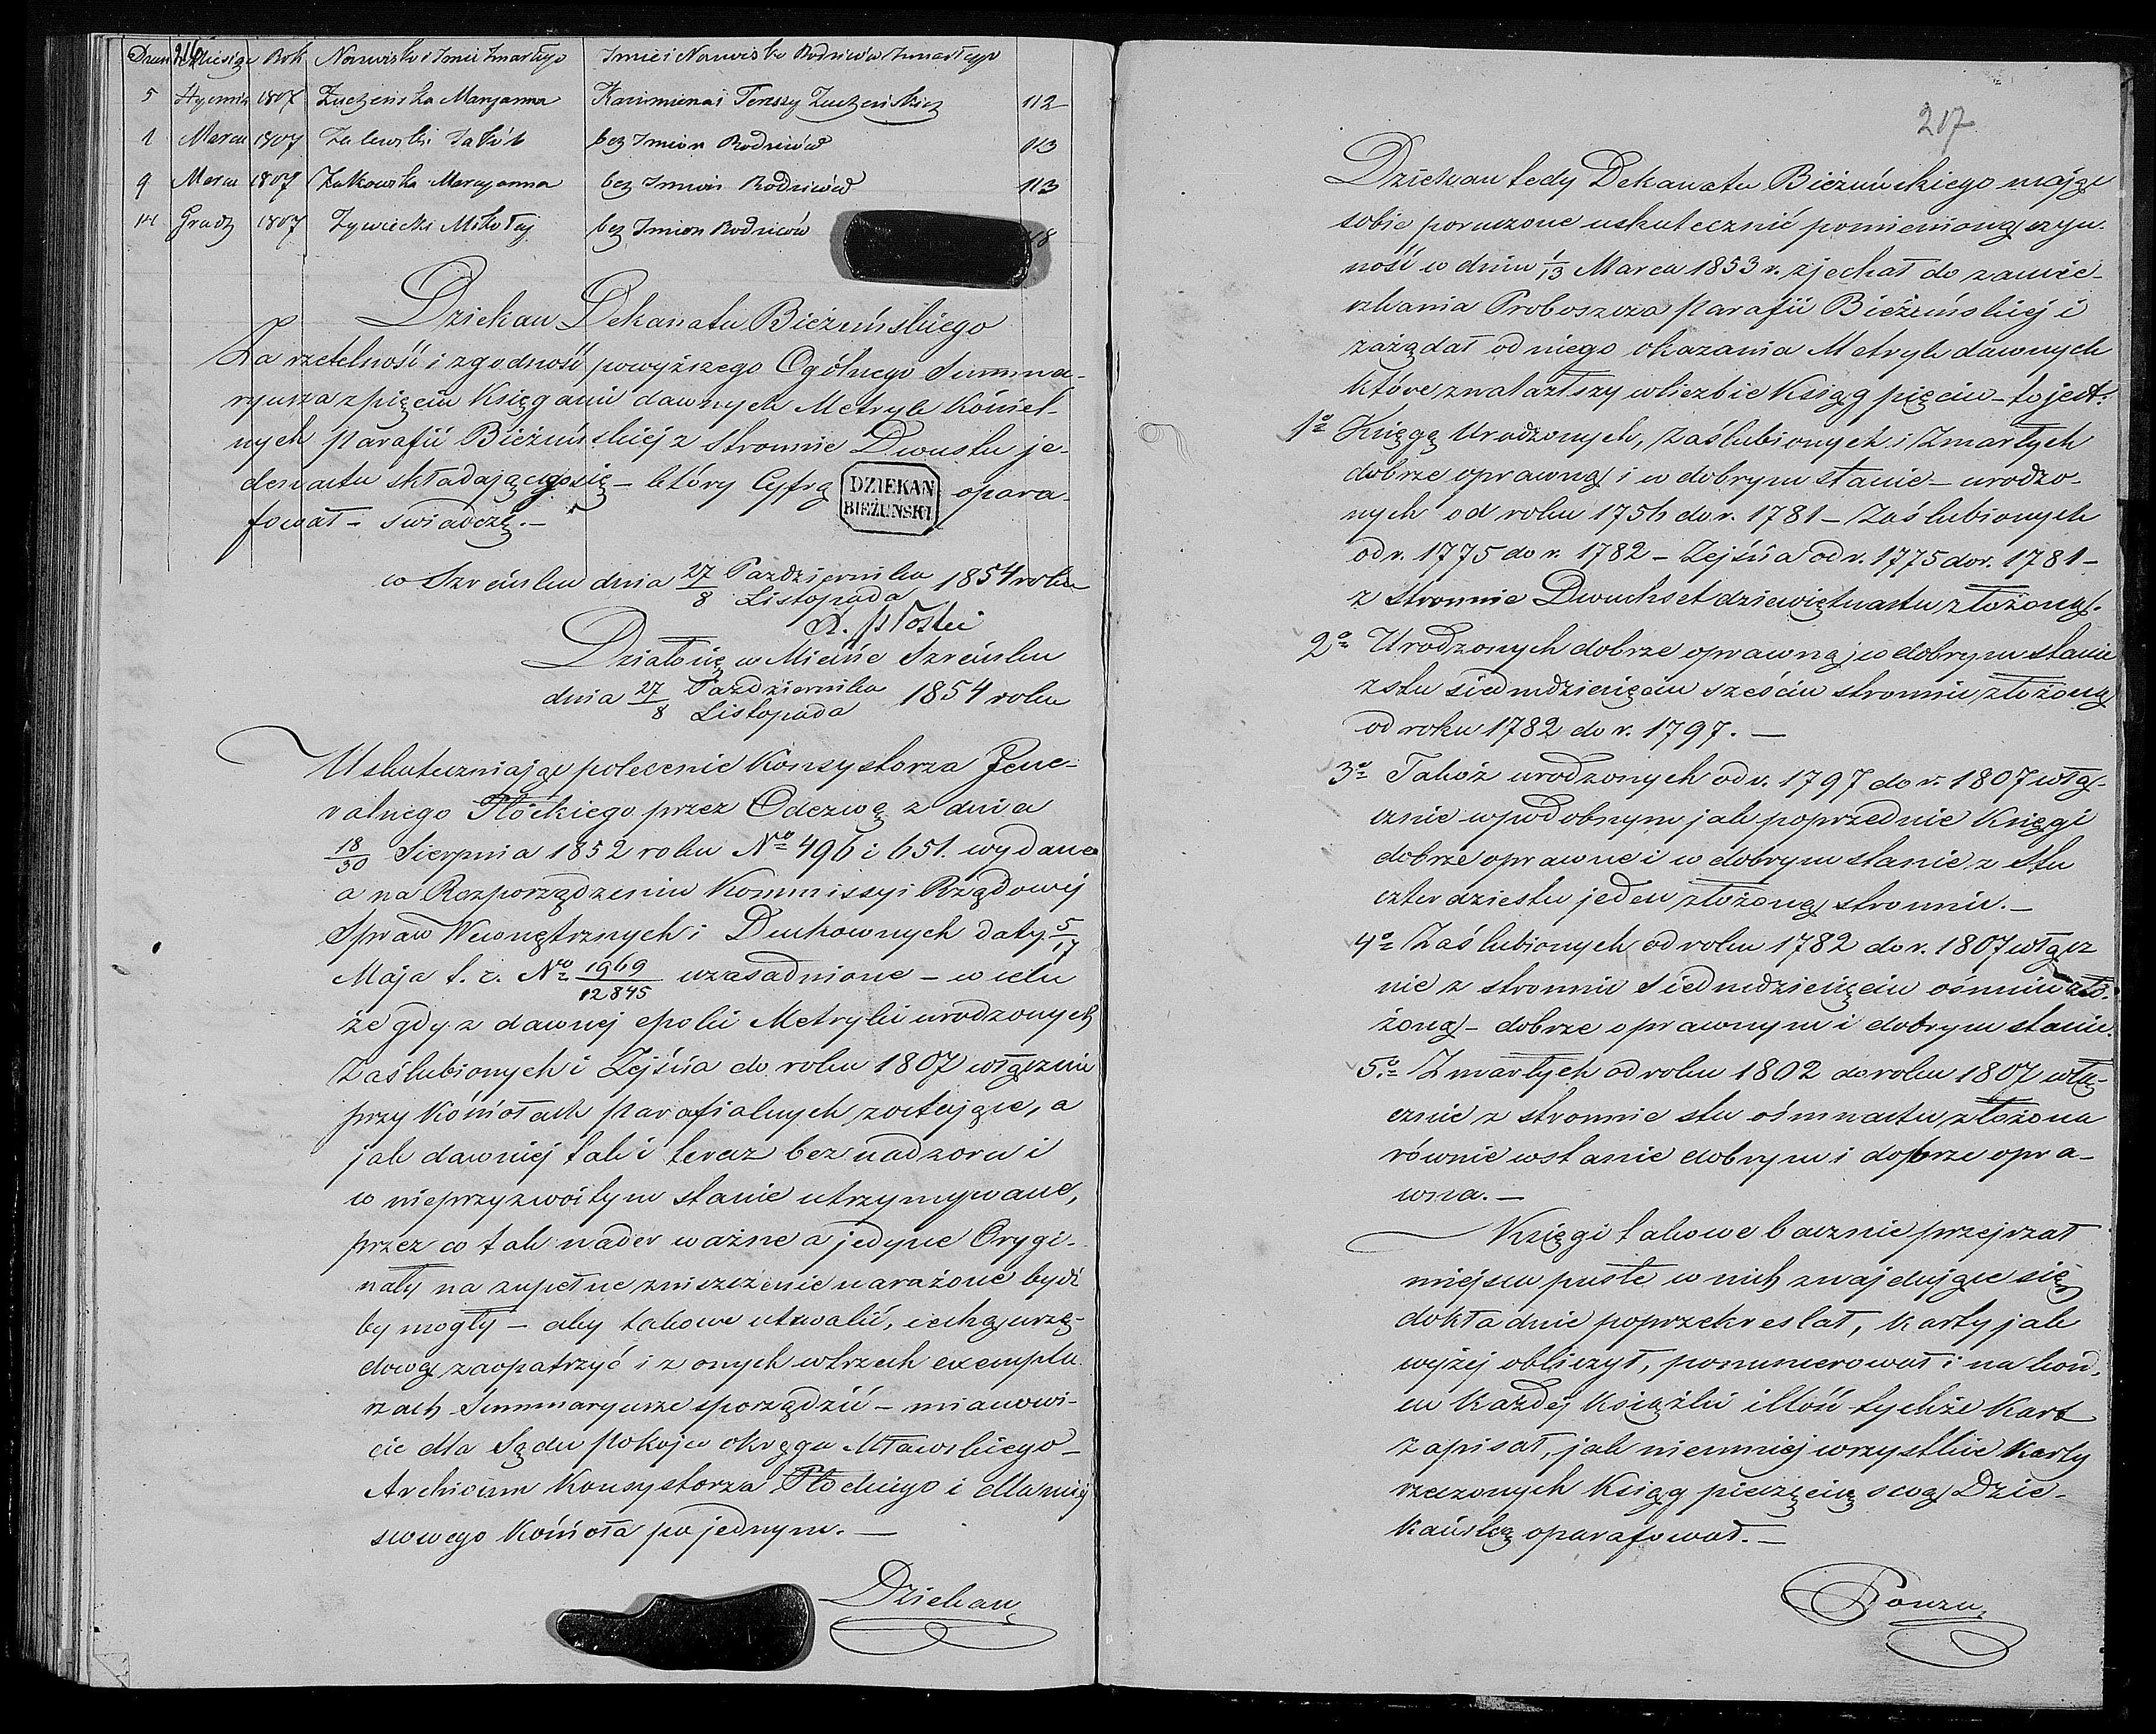 216
Dzień Miesiąc Rok Nazwisko i Imie Zmarłego Imie i Nazwisko Rodziców Zmarłego
5 Stycznia 1807 Zuczeńska Maryanna Kazimierza i Teressy Zuczeńskich 112
1 Marca 1807 Zalewski Jakób bez Imion Rodziców 113
9 Marca 1807 Załkowska Maryanna bez Imion Rodziców 113
14 Grudz 1807 Zywiecki Mikołaj bez Imion Rodziców
Dziekan Dekanatu Bieżuńskiego
Za rzetelność i zgodność powyższego Ogólnego Summa-
ryusza z pięciu Księgami dawnych Metryk Kościel-
nych Parafii Bieżuńskiej z Stronnic Dwustu je-
denastu składającego się – który Cyfrą DZIEKAN BIEŻUNSKI opara-
fował – świadczę. –
w Szreńsku dnia 27/8 Października/Listopada 1854 roku
Działo się w Mieście Szreńsku
dnia 27/8 Października/Listopada 1854 roku
Uskuteczniając polecenie Konsystorza Jene-
ralnego Płóckiego przez Odezwę z dnia
18/30 Sierpnia 1852 roku No 496 i 651. wydane
a na Rozporządzeniu Kommissyi Rządowej
Spraw Wewnętrznych i Duchownych daty 5/17
Maja t. r. No 1969/12845 uzasadnione – w celu
że gdy z dawnej epoki Metryki urodzonych
Zaślubionych i Zejścia do roku 1807 włącznie
przy Kościołach parafialnych zostające, a
jak dawniej tak i teraz bez nadzoru i
w nieprzyzwoitym stanie utrzymywane,
przez co tak nader ważne a jedyne Orygi-
nały na zupełne zniszczenie narażone bydź
by mogły – aby takowe utrwalić, cechą urzę-
dową zaopatrzyć i z onych w trzech exempla-
rzach Summaryusze sporządzić – mianowi-
cie dla Sądu Pokoju okręgu Mławskiego –
Archiwum Konsystorza Płockiego i dla miej
scowego Kościoła po jednym. –
Dziekan
217
Dziekan tedy Dekanatu Bieżuńskiego mając
sobie poruczone uskutecznić pomienioną czyn-
ność w dniu 1/13 Marca 1853 r. zjechał do zamie-
szkania Proboszcza Parafii Bieżuńskiej i
zażądał od niego okazania Metryk dawnych
które znalazłszy w liczbie Ksiąg pięciu – to jest:
1o Księgę Urodzonych, Zaślubionych i Zmarłych
dobrze oprawną i w dobrym stanie – urodzo-
nych od roku 1756 do r. 1781 – Zaślubionych
od r. 1775 do r. 1782 – Zejścia od r. 1775 do r. 1781 –
z stronnic Dwuchset dziewiętnastu złożoną.
2o Urodzonych dobrze oprawną w dobrym stanie
z stu siedmdziesięciu sześciu stronnic złożoną
od roku 1782 do r. 1797. –
3o Takóż urodzonych od r. 1797 do r. 1807 włą-
cznie w podobnym jak poprzednie Księgi
dobrze oprawne i w dobrym stanie z stu
czterdziestu jeden złożoną stronnic. –
4o Zaślubionych od roku 1782 do r. 1807 włącz
nie z stronnic siedmdziesięciu ośmiu zło-
żoną – dobrze oprawnym i dobrym stanie.
5o Zmarłych od roku 1802 do roku 1807 włą-
cznie z stronnic stu ośmnastu złożona
równie w stanie dobrym i dobrze opra-
wna. –
Księgi takowe bacznie przejrzał
miejsca puste w nich znajdujące się
dokładnie poprzekreslał, karty jak
wyżej obliczył, ponumerował i na koń-
cu każdej książki illość tychże kart
zapisał, jak niemniej wszystkie karty
rzeczonych Ksiąg pieczęcią swą Dzie-
kańską oparafował. –